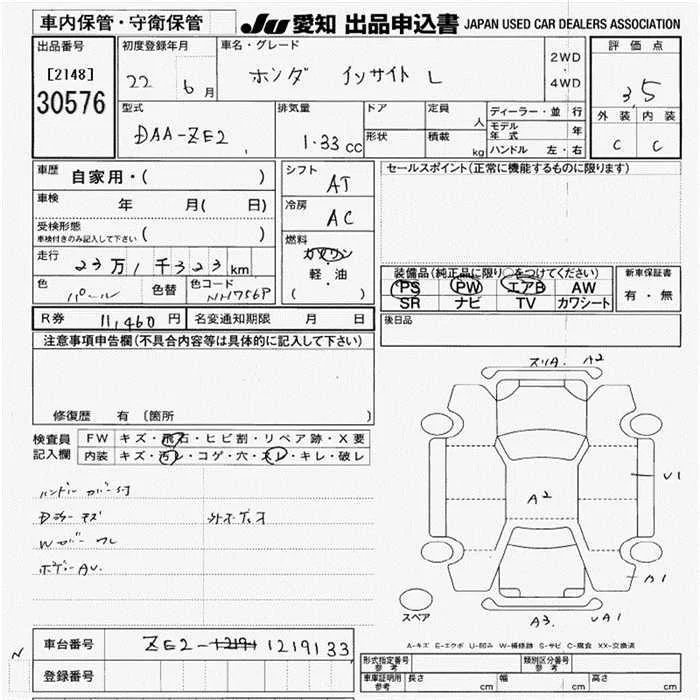 車内保管・守衛保管 JU 愛知 出品申込書 JAPAN USED CAR DEALERS ASSOCIATION
出品番号 初度登録年月 車名・グレード 2WD ・ 4WD 評価点
[2148] 22 6月 ホンダ インサイト L 3.5
30576 型式 排気量 ドア 定員 人 ディーラー・並行 外装 内装
DAA-ZE2 1.33cc 形状 積載 kg モデル年式 年 C C
ハンドル 左・右
車歴 自家用・( ) シフト AT セールスポイント(正常に機能するものに限ります)
車検 年 月( 日) 冷房 AC
受検形態 車検付きのみ記入して下さい ( )
燃料 ガソリン 軽・油 ( )
走行 23万1千323km 装備品(純正品に限り○をつけてください) 新車保証書
色 パール 色替 色コード NH756P PS PW エアB AW 有・無
SR ナビ TV カワシート
R券 11,460円 名変通知期限 月 日 後日品
注意事項申告欄(不具合内容等は具体的に記入して下さい)
修復歴 有 〔箇所 〕
検査員記入欄 FW キズ・飛石・ヒビ割・リペア跡・X要
内装 キズ・汚レ・コゲ・穴・スレ・キレ・破レ
スリA. A2
A2
U1
A1
A3. UA1
スペア
A-キズ E-エクボ U-凹み W-補修跡 S-サビ C-腐食 XX-交換済
車台番号 ZE2-1219133
N 登録番号
形式指定番号 参考 類別区分番号 参考
車庫証明用 参考 長さ cm 幅 cm 高さ cm